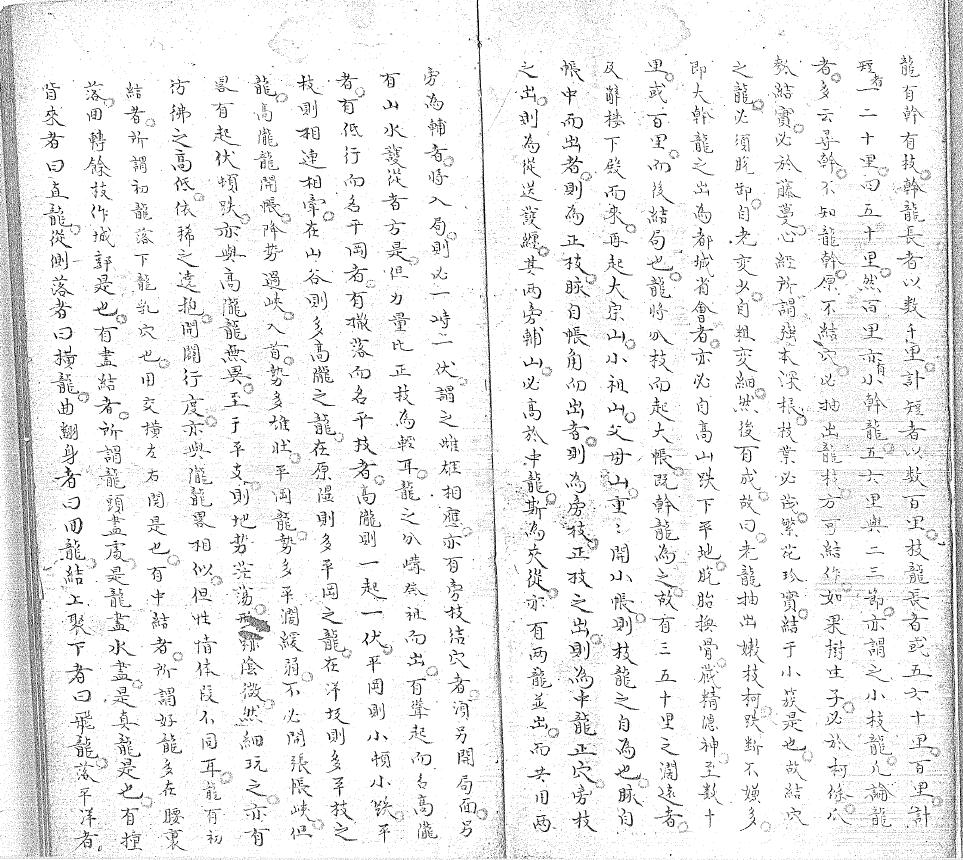 龍有幹有枝幹龍長者以数千里計短者以数百里枝龍長者或五六十里百里計
短者一二十里四五十里然百里亦有小幹龍五六里與二三節亦謂之小枝龍凡論龍
者多云尋幹不知龍幹原不結穴必抽出龍枝方可結作如果樹生子必於柯條瓜
瓠結實必於藤蔓心經所謂強本深根枝葉必茂繁花珍實結于小蔟是也故結穴
之龍必須脫卸自老变少自粗变細然後有成故曰老龍抽出嫩枝柯跌断不嫌多
即大幹龍之出為都城省會者亦必自高山跌下平地脫胎換骨藏精傯神至数十
里或百里而後結局也龍將分枝而起大帳既幹龍為之故有三五十里之濶遠者
及辭楼下殿而來再起大宗山小祖山父母山重〻開小帳則枝龍之自為也脉自
帳中而出者則為正枝脉自帳角而出者則為旁枝正枝之出則為中龍正穴旁枝
之出則為從送護纏其两旁輔山必高於中龍斯為夾從亦有两龍並出而共用两
旁為輔者將入局則必一峙一伏謂之雌雄相應亦有旁枝结穴者須另開局面另
有山水護從者方是但力量比正枝為輕耳龍之分嶂祭祖而出有聳起而名高隴
者有低行而名平岡者有撒落而名平枝者高隴則一起一伏平岡則小頓小跌平
枝則相連相牽在山谷則多高隴之龍在原隰則多平岡之龍在洋坂則多平枝之
龍高隴龍開帳降势過峡入首势多雄壯平岡龍势多平濶緩弱不必開張帳峡但
畧有起伏頓跌亦與高隴龍無異至于平支則地势茫荡形跡陰微然細玩之亦有
彷彿之高低依稀之遶抱開闢行度亦與隴龍畧相似但性情体段不同耳龍有初
結者所謂初龍落下龍乳穴也用交横左右関是也有中結者所謂好龍多在腰裏
落田轉餘枝作城郭是也有盡結者所謂龍頭盡處是龍盡水盡是真龍是也有撞
背來者曰直龍從側落者曰横龍曲翻身者曰回龍結上聚下者曰飛龍落平洋者